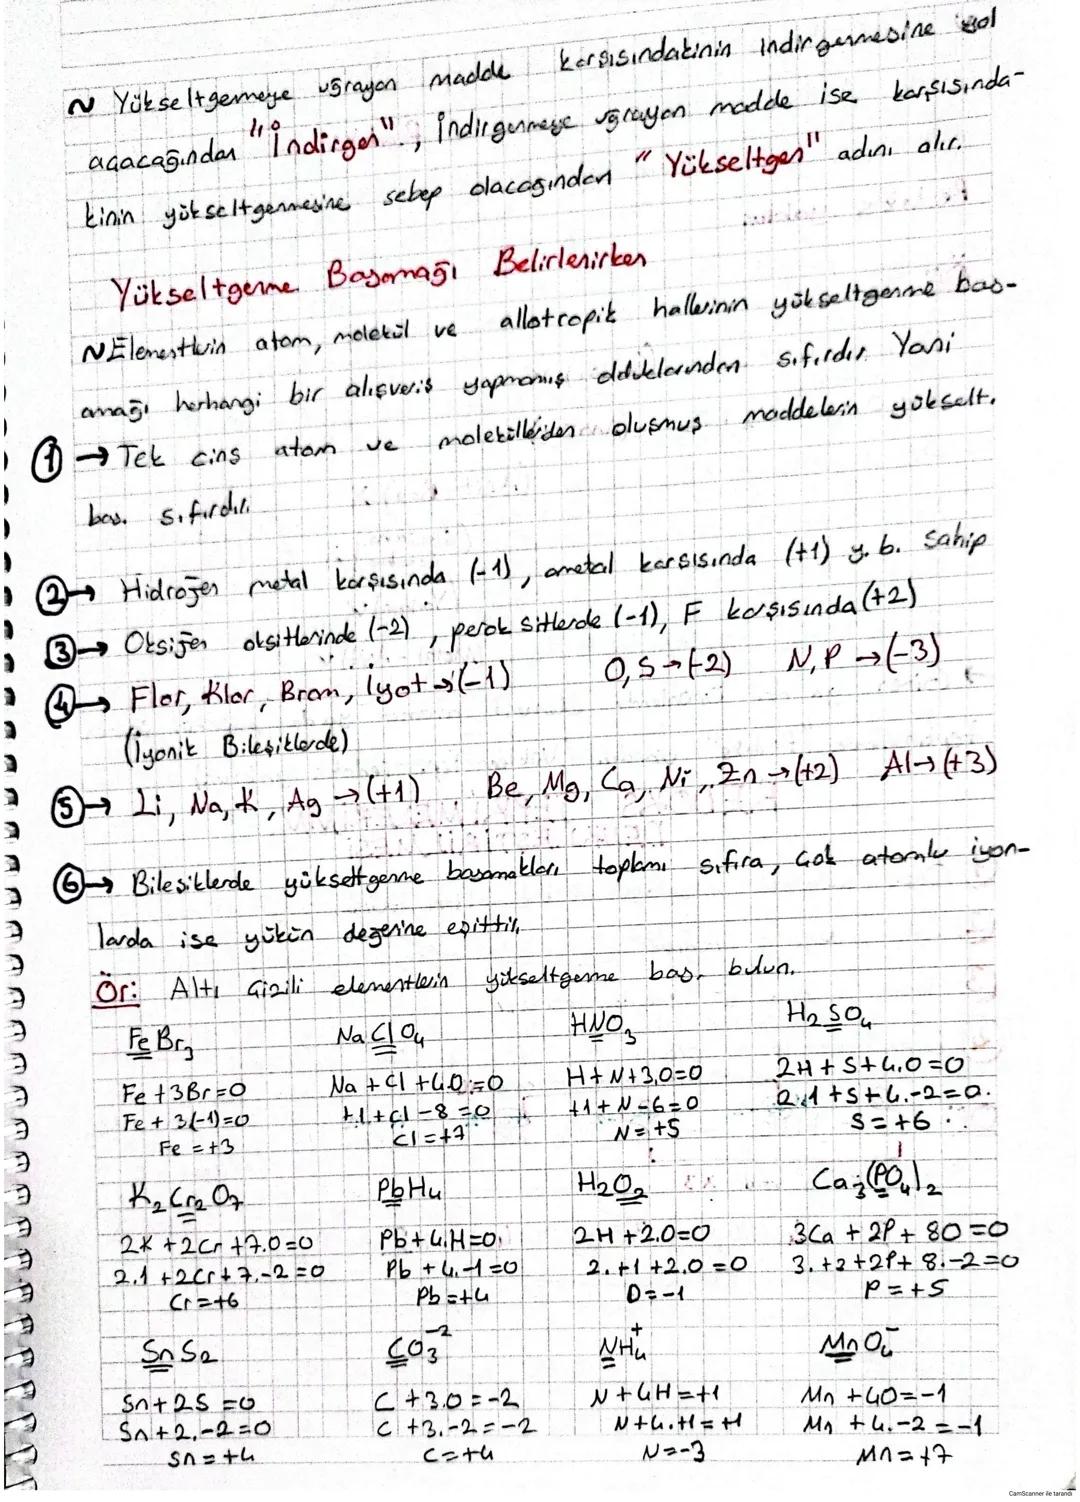 ~ Yükseltgenmeye uğrayan madde karşısındakinin indirgenmesine yol
açacağından "İndirgen", İndirgenmeye uğrayan madde ise karşısında-
kinin yükseltgenmesine sebep olacağından "Yükseltgen" adını alır.
Yükseltgenme Basamağı Belirlenirken
~ Elementlerin atom, molekül ve allotropik hallerinin yükseltgenme bas-
amağı herhangi bir alışveriş yapmamış olduklarından sıfırdır. Yani
① → Tek cins atom ve moleküllerden oluşmuş maddelerin yükselt.
bas. sıfırdır.
② → Hidrojen metal karşısında (-1), ametal karşısında (+1) y.b. sahip
③ → Oksijen oksitlerinde (-2), peroksitlerde (-1), F karşısında (+2)
④ → Flor, Klor, Brom, İyot → (-1) O, S → (-2) N, P → (-3)
(İyonik Bileşiklerde)
⑤ → Li, Na, K, Ag → (+1) Be, Mg, Ca, Ni, Zn → (+2) Al → (+3)
⑥ → Bileşiklerde yükseltgenme basamakları toplamı sıfıra, çok atomlu iyon-
larda ise yükün değerine eşittir.
Ör: Altı çizili elementlerin yükseltgenme bas. bulun.
FeBr₃ NaClO₄ HNO₃ H₂SO₄
Fe+3Br=0 Na+Cl+4.O=0 H+N+3.O=0 2H+S+4.O=0
Fe+3(-1)=0 +1+Cl-8=0 +1+N-6=0 2.1+S+4.-2=0
Fe=+3 Cl=+7 N=+5 S=+6
K₂Cr₂O₇ PbH₄ H₂O₂ Ca₃(PO₄)₂
2K+2Cr+7.O=0 Pb+4.H=0 2H+2.O=0 3Ca+2P+8O=0
2.1+2Cr+7.-2=0 Pb+4.-1=0 2.+1+2.O=0 3.+2+2P+8.-2=0
Cr=+6 Pb=+4 O=-1 P=+5
SnS₂ CO₃⁻² NH₄⁺ MnO₄⁻
Sn+2S=0 C+3.O=-2 N+4H=+1 Mn+4O=-1
Sn+2.-2=0 C+3.-2=-2 N+4.+1=+1 Mn+4.-2=-1
Sn=+4 C=+4 N=-3 Mn=+7
CamScanner ile tarandı